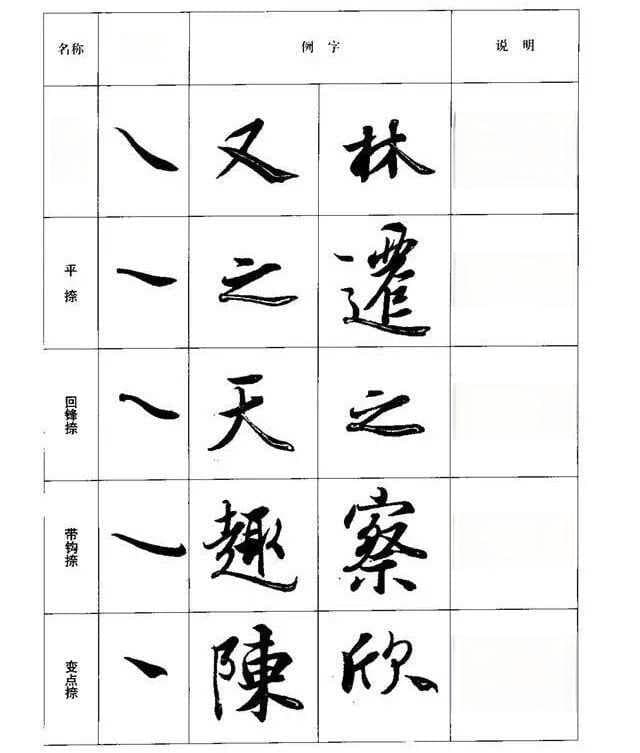 名称 例字 说明
又 林
平捺 之 遷
回锋捺 天 之
带钩捺 趣 察
变点捺 陳 欣